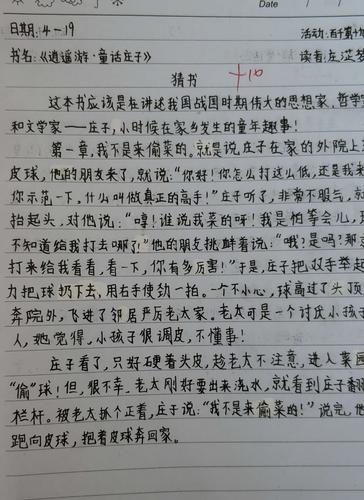 Date
日期:4-19 活动:百千万
书名:《逍遥游·童话庄子》 读者:左芷
猜书 +10
这本书应该是在讲述我国战国时期伟大的思想家、哲学
和文学家——庄子,小时候在家乡发生的童年趣事!
第一章,我不是来偷菜的。就是说庄子在家的外院上
皮球,他的朋友来了,就说:“你好!你怎么打这么低,还是我来
你示范一下,什么叫做真正的高手!”庄子听了,非常不服气,就
抬起头,对他说:“哼!谁说我菜的呀!我是怕等会儿,
不知道给我打去哪了!”他的朋友挑衅着说:“哦?是吗?那
打来给我看看,看一下,你有多厉害!”于是,庄子把双手举起
力把球扔下去,用右手使劲一拍。一个不小心,球高过了头顶
奔院外,飞进了邻居严厉老太家。老太可是一个讨厌小孩子
人,她觉得,小孩子很调皮,不懂事!
庄子看了,只好硬着头皮,趁老太不注意,进入菜园
“偷”球!但,很不幸。老太刚好要出来浇水,就看到庄子翻
栏杆。被老太抓个正着,庄子说:“我不是来偷菜的!”说完,他
跑向皮球,抱着皮球奔回家。